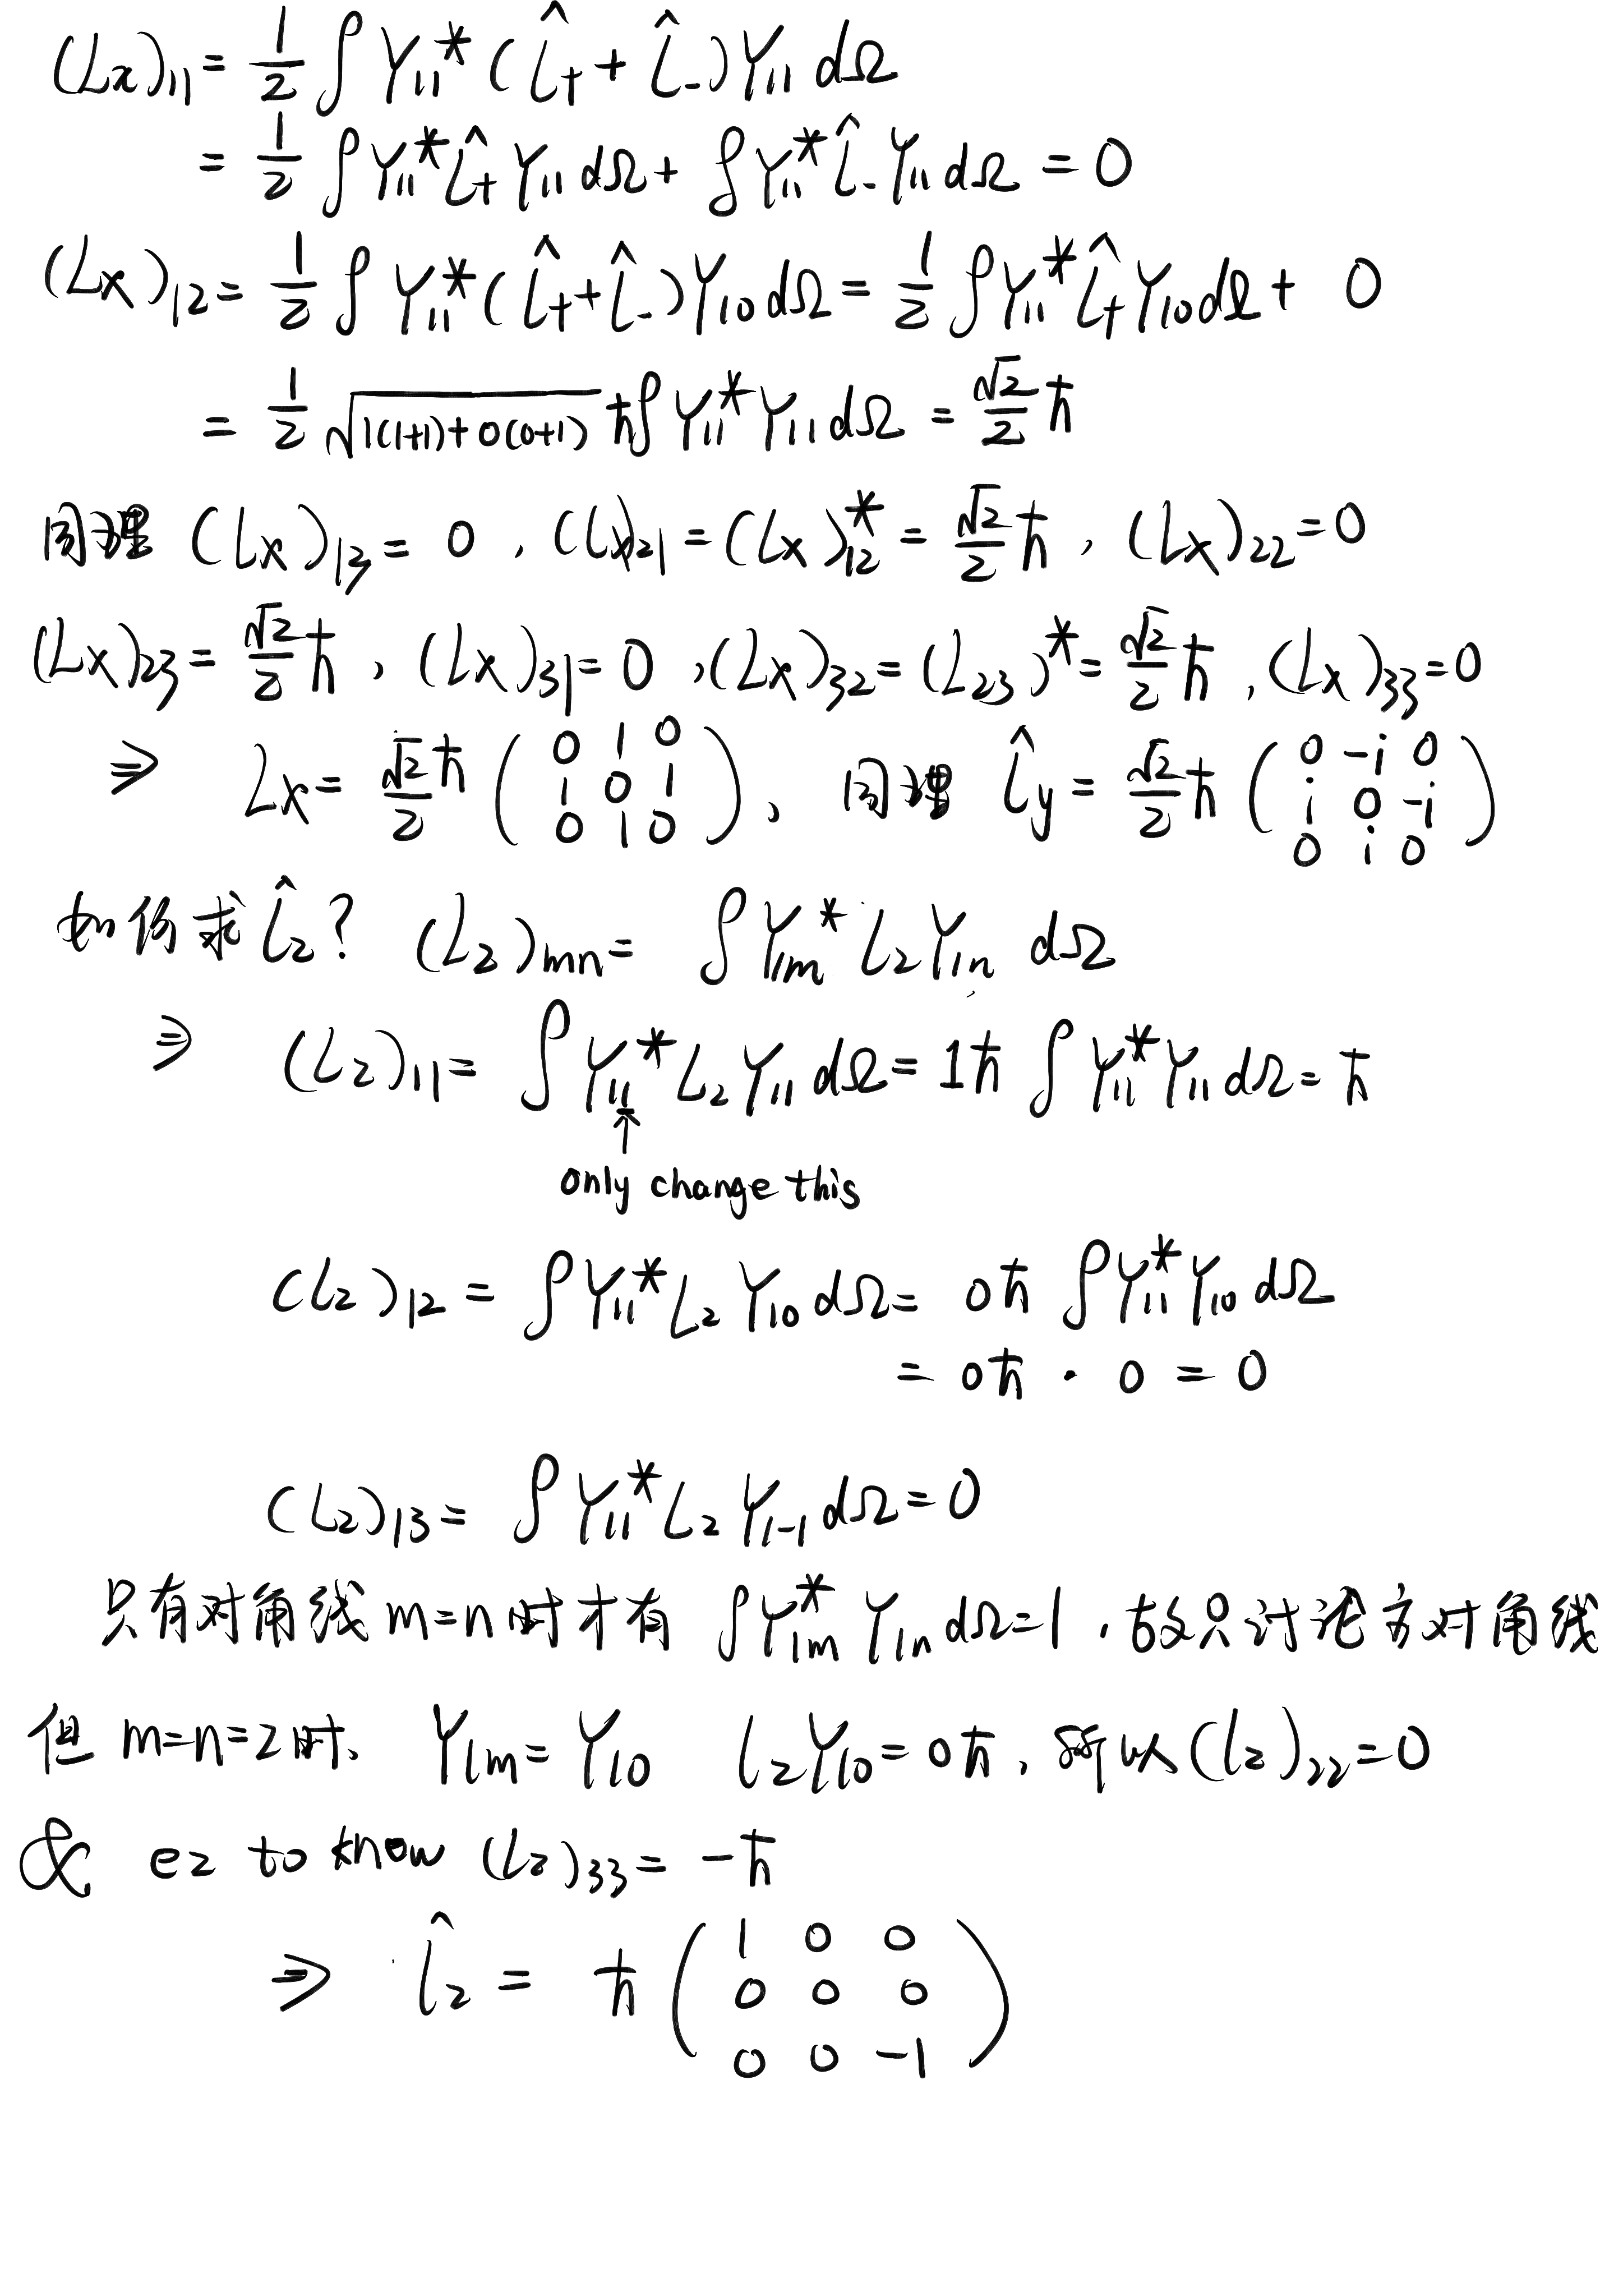 (Lx)₁₁ = 1/2 ∫ Y₁₁* (L̂₊ + L̂₋) Y₁₁ dΩ
= 1/2 ∫ Y₁₁* L̂₊ Y₁₁ dΩ + ∫ Y₁₁* L̂₋ Y₁₁ dΩ = 0
(Lx)₁₂ = 1/2 ∫ Y₁₁* (L̂₊ + L̂₋) Y₁₀ dΩ = 1/2 ∫ Y₁₁* L̂₊ Y₁₀ dΩ + 0
= 1/2 √(1(1+1)+0(0+1)) ħ ∫ Y₁₁* Y₁₁ dΩ = √2/2 ħ
同理 (Lx)₁₃ = 0 , (Lx)₂₁ = (Lx)₁₂* = √2/2 ħ , (Lx)₂₂ = 0
(Lx)₂₃ = √2/2 ħ , (Lx)₃₁ = 0 , (Lx)₃₂ = (L₂₃)* = √2/2 ħ , (Lx)₃₃ = 0
⇒ Lx = √2/2 ħ (0 1 0; 1 0 1; 0 1 0) 、 同理 L̂y = √2/2 ħ (0 -i 0; i 0 -i; 0 i 0)
如何求 L̂z ? (Lz)mn = ∫ Y₁m* Lz Y₁n dΩ
⇒ (Lz)₁₁ = ∫ Y₁₁* Lz Y₁₁ dΩ = 1ħ ∫ Y₁₁* Y₁₁ dΩ = ħ
↑
only change this
(Lz)₁₂ = ∫ Y₁₁* Lz Y₁₀ dΩ = 0ħ ∫ Y₁₁* Y₁₀ dΩ
= 0ħ · 0 = 0
(Lz)₁₃ = ∫ Y₁₁* Lz Y₁₋₁ dΩ = 0
只有对角线 m=n 时才有 ∫ Y₁m* Y₁n dΩ = 1 , 故只讨论主对角线
但 m=n=2 时、 Y₁m = Y₁₀ Lz Y₁₀ = 0ħ , 所以 (Lz)₂₂ = 0
& ez to know (Lz)₃₃ = -ħ
⇒ L̂z = ħ (1 0 0; 0 0 0; 0 0 -1)